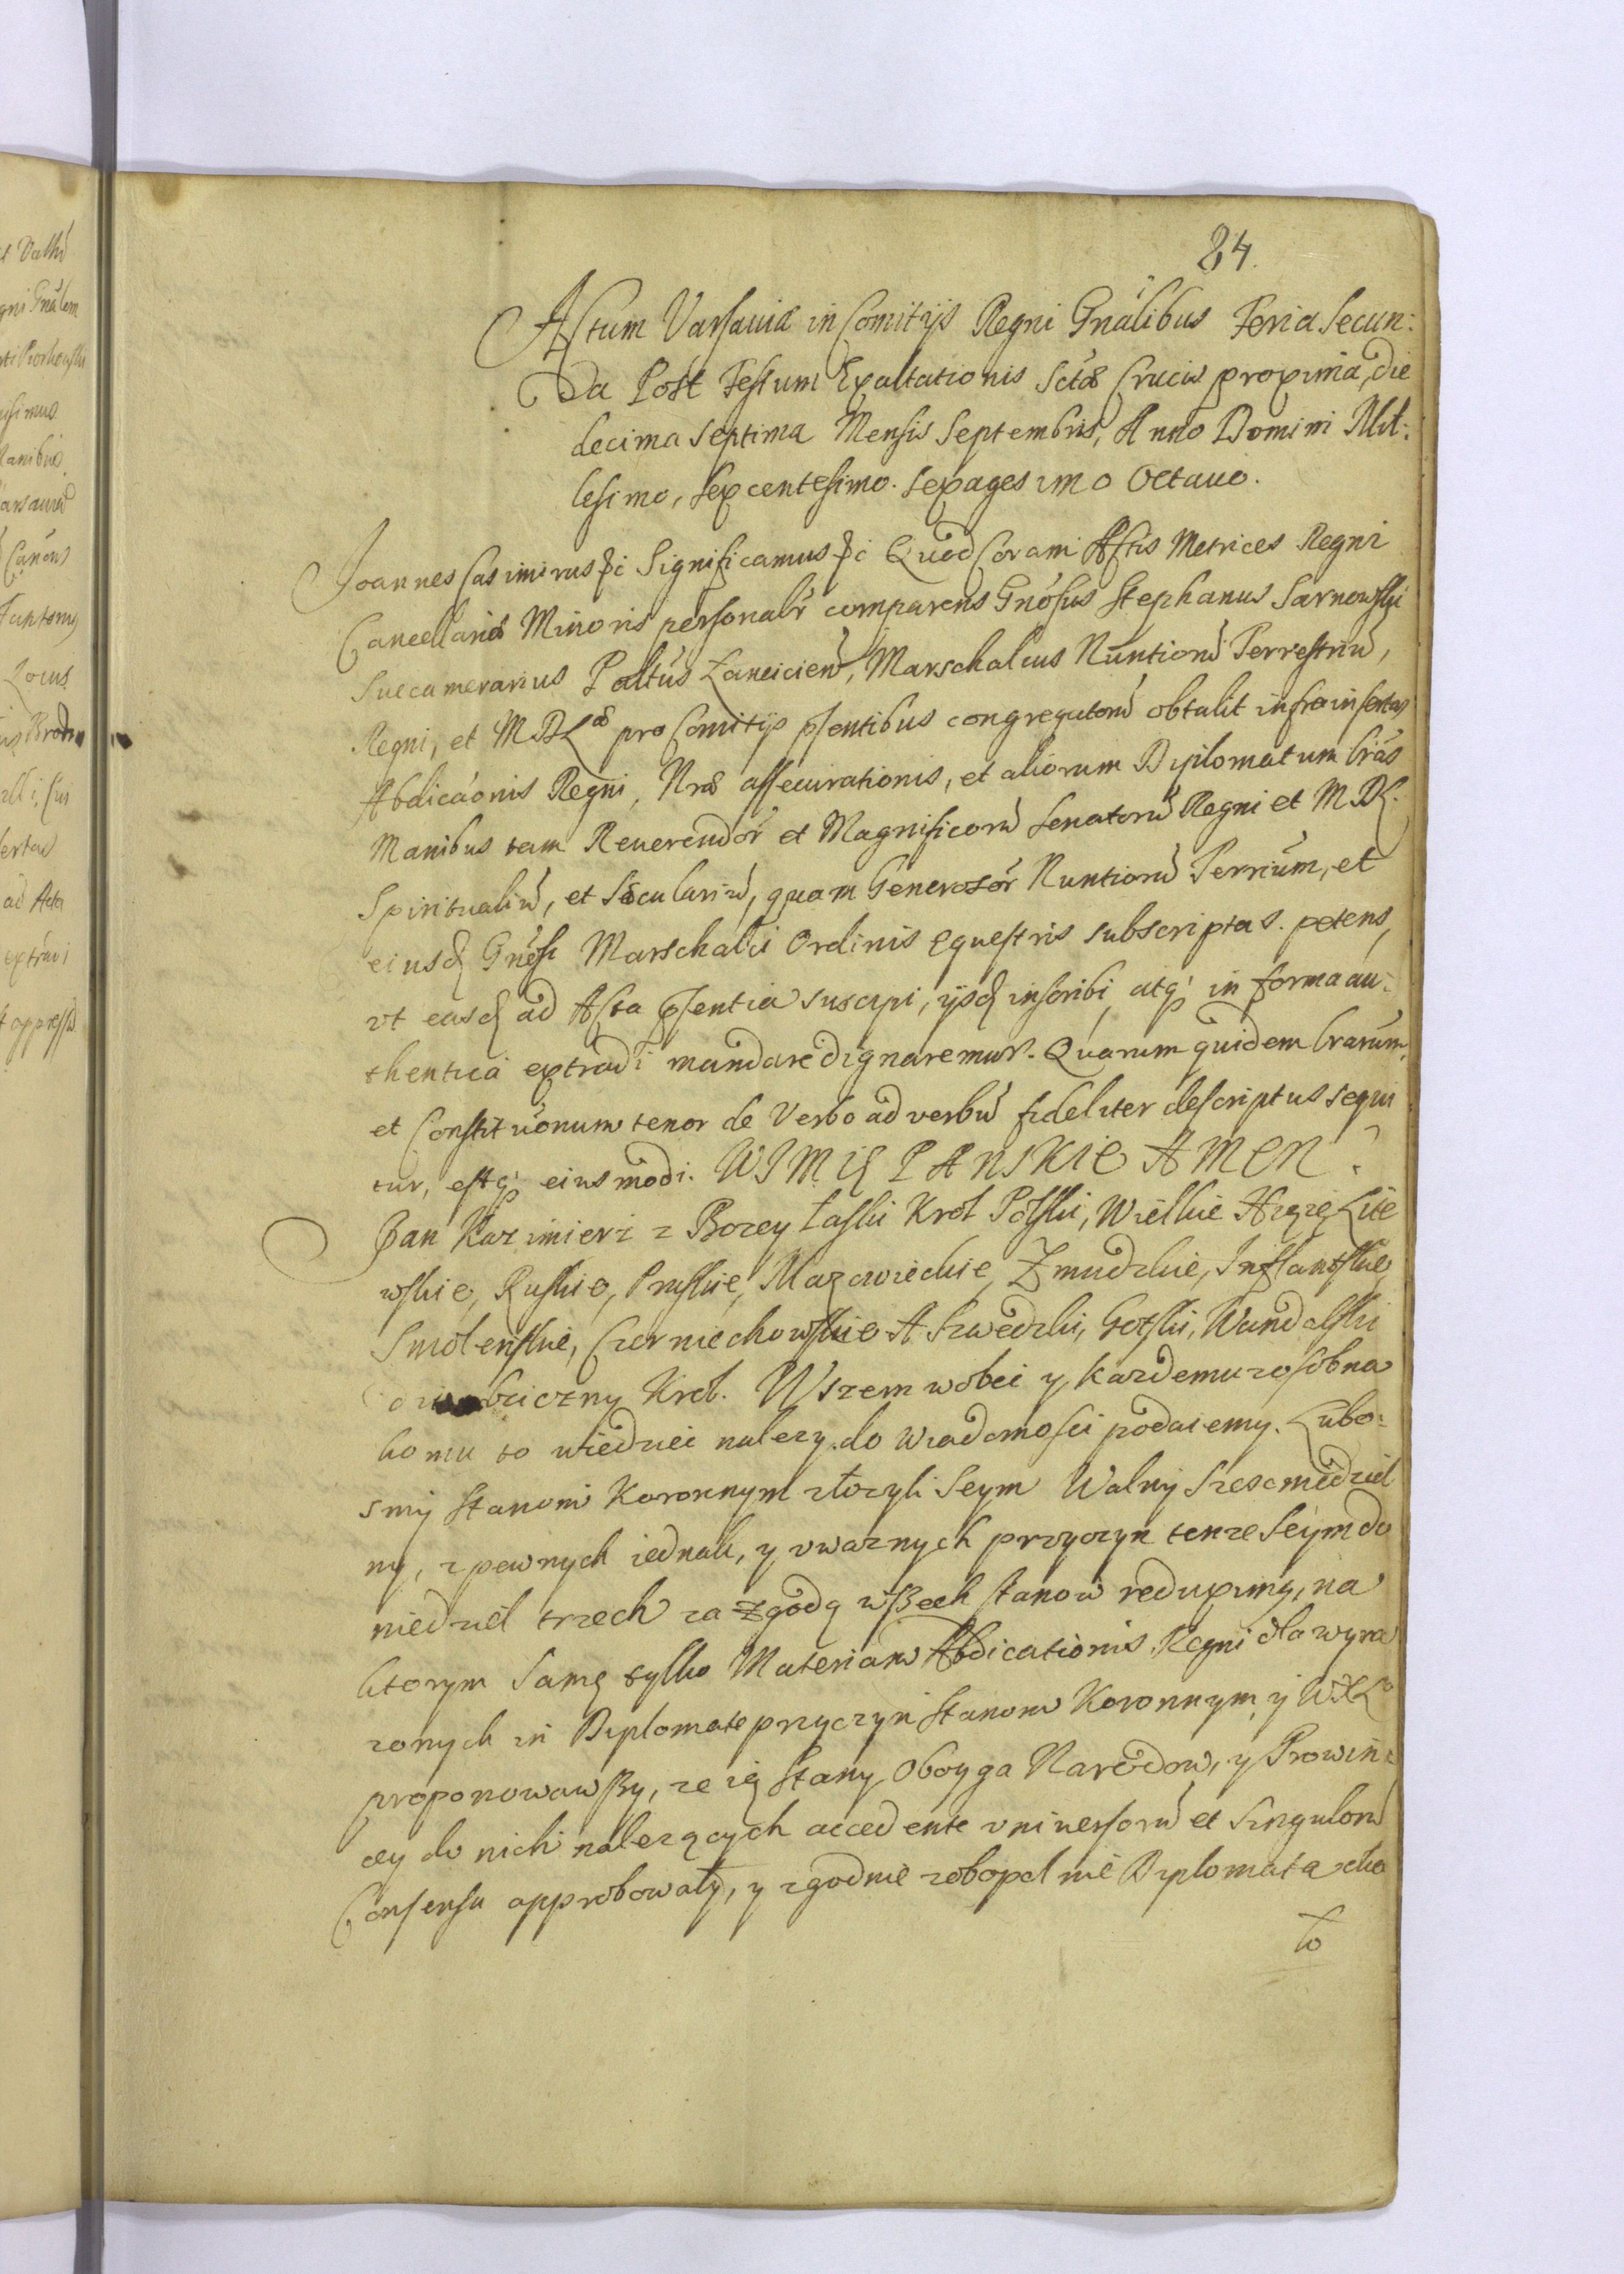 84.
Actum Varsaviæ in Comitijs Regni Gnalibus Feria Secun:
da Post Festum Exaltationis Sctæ Crucis proxima, die
decima septima Mensis Septembris, Anno Domini Mil:
lesimo, sexcentesimo. sexagesimo Octavo.
Joannes Casimirus &c Significamus &c Quod Coram Actis Metrices Regni
Cancellariæ Minoris personalr comparens Gnosus Stephanus Sarnowski
Succamerarius Paltus Lancicien, Marschalcus Nuntiorū Terrestriū,
Regni, et M.D.L. pro Comitijs pſentibus congregatorū obtulit infra insertas
Abdicaonis Regni, Nræ assecurationis, et aliorum Diplomatum lras
Manibus tam Reuerendor et Magnificorū Senatorū Regni et M.D.L.
Spiritualiū, et Sæculariū, quam Generosor Nuntiorū Terrium, et
eiusđ Gnosi Marschalci Ordinis equestris subscriptas. petens,
vt easđ ad Acta pſentia suscipi, ijsđ inscribi, atq in forma au:
thentica extradi mandare dignaremur. Quarum quidem lrarum,
et Constituonum tenor de Verbo ad verbū fideliter descriptus sequi
tur, estq eiusmodi. W IMIĘ PANSKIE AMEN.
Jan Kazimierz z Bozey łaski Krol Polski, Wielkie Xiąże Lite
wskie, Ruskie, Pruskie, Mazowieckie, Zmudzkie, Inflantskie,
Smolenskie, Czerniechowskie A Szwedzki, Gotski, Wandalski
dziedziczny Krol. Wszem wobec y kazdemu zosobna
komu to wiedziec nalezy do wiadomosci podaiemy. Lubo:
smy Stanom Koronnym złozyli Seym Walny Szescniedziel
ny, z pewnych iednak, y vwaznych przyczyn tenze Seym do
niedziel trzech za zgodą wszech stanow reduximy, na
ktorym samę tylko Materiam Abdicationis Regni dla wyra
zonych in Diplomate przyczyn Stanom Koronnym y W.X.L.
proponowawszy, ze ię Stany Oboyga Narodow, y Prowin:
cey do nich nalezących accedente vniuersorū et Singulorū
Consensu approbowały, y zgodnie zobopolnie Diplomata na
to